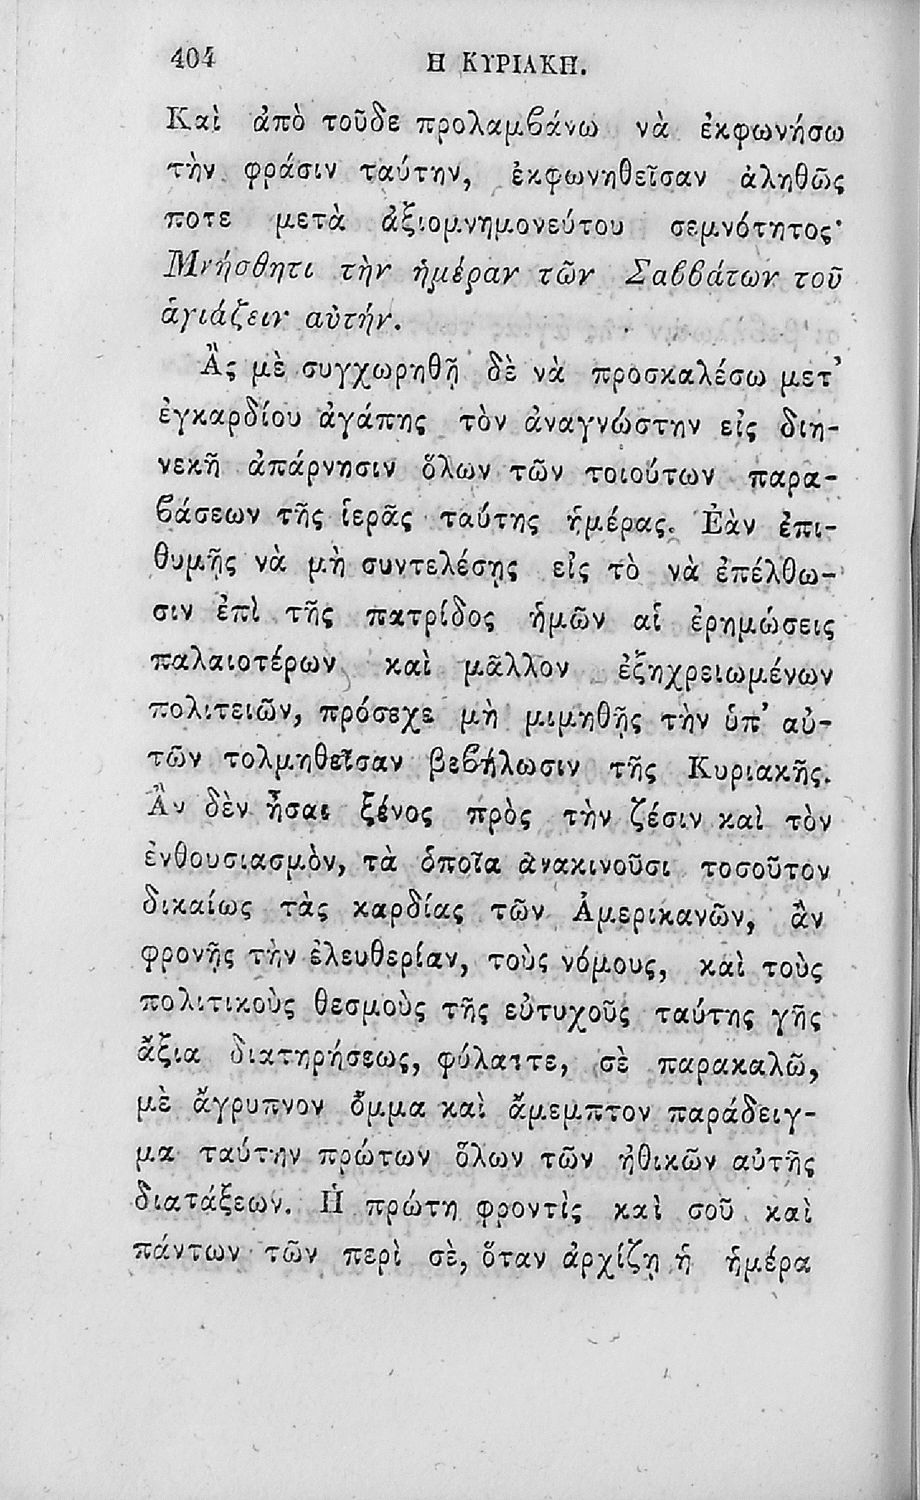 404 Η ΚΥΡΙΑΚΗ.
Καὶ ἀπὸ τοῦδε προλαμϐάνω νὰ ἐκφωνήσω
τὴν φράσιν ταύτην, ἐκφωνηθεῖσαν ἀληθῶς
ποτε μετὰ ἀξιομνημονεύτου σεμνότητος·
Μνήσθητι τὴν ἡμέραν τῶν Σαϐϐάτων τοῦ
ἁγιάζειν αὐτήν.
Ἂς μὲ συγχωρηθῇ δὲ νὰ προσκαλέσω μετ’
ἐγκαρδίου ἀγάπης τὸν ἀναγνώστην εἰς διη-
νεκῆ ἀπάρνησιν ὅλων τῶν τοιούτων παρα-
ϐάσεων τῆς ἱερᾶς ταύτης ἡμέρας. Ἐὰν ἐπι-
θυμῇς νὰ μὴ συντελέσῃς εἰς τὸ νὰ ἐπέλθω-
σιν ἐπὶ τῆς πατρίδος ἡμῶν αἱ ἐρημώσεις
παλαιοτέρων καὶ μᾶλλον ἐξηχρειωμένων
πολιτειῶν, πρόσεχε μὴ μιμηθῇς τὴν ὑπ’ αὐ-
τῶν τολμηθεῖσαν βεϐήλωσιν τῆς Κυριακῆς.
Ἂν δὲν ἦσαι ξένος πρὸς τὴν ζέσιν καὶ τὸν
ἐνθουσιασμὸν, τὰ ὁποῖα ἀνακινοῦσι τοσοῦτον
δικαίως τὰς καρδίας τῶν Ἀμερικανῶν, ἂν
φρονῇς τὴν ἐλευθερίαν, τοὺς νόμους, καὶ τοὺς
πολιτικοὺς θεσμοὺς τῆς εὐτυχοῦς ταύτης γῆς
ἄξια διατηρήσεως, φύλαττε, σὲ παρακαλῶ,
μὲ ἄγρυπνον ὄμμα καὶ ἄμεμπτον παράδειγ-
μα ταύτην πρώτων ὅλων τῶν ἠθικῶν αὐτῆς
διατάξεων. Ἡ πρώτη φροντὶς καὶ σοῦ καὶ
πάντων τῶν περὶ σὲ, ὅταν ἀρχίζῃ ἡ ἡμέρα